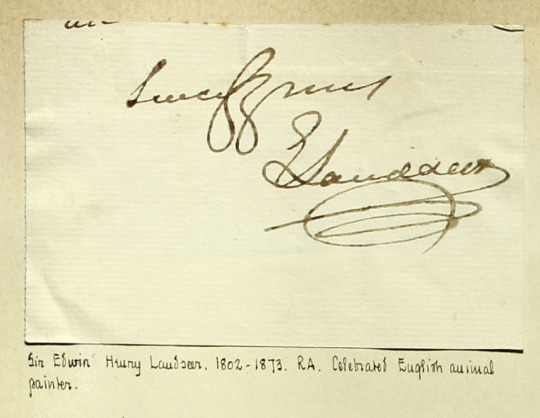 Sincerely yours
E Landseer
Sir Edwin Henry Landseer. 1802-1873. RA. Celebrated English animal
painter.